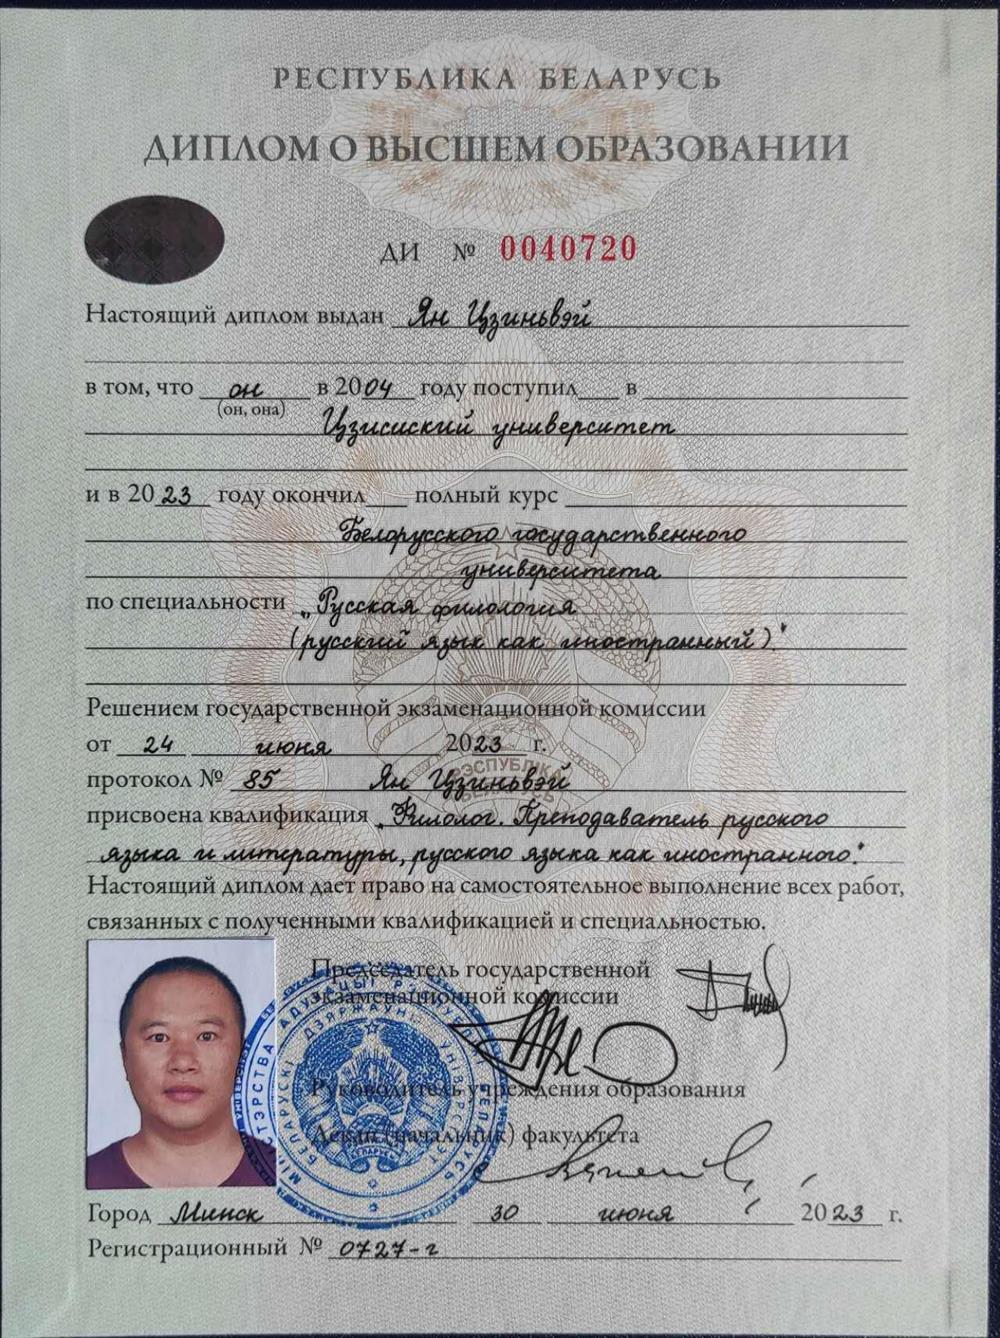 РЕСПУБЛИКА БЕЛАРУСЬ
ДИПЛОМ О ВЫСШЕМ ОБРАЗОВАНИИ
ДИ № 0040720
Настоящий диплом выдан Ян Цзиньвэй
в том, что он в 2004 году поступил в
(он, она)
Цзисиский университет
и в 2023 году окончил полный курс
Белорусского государственного
университета
по специальности „Русская филология
(русский язык как иностранный)"
Решением государственной экзаменационной комиссии
от 24 июня 2023 г.
протокол № 85 Ян Цзиньвэй
присвоена квалификация „Филолог. Преподаватель русского
языка и литературы, русского языка как иностранного."
Настоящий диплом дает право на самостоятельное выполнение всех работ,
связанных с полученными квалификацией и специальностью.
Председатель государственной
экзаменационной комиссии
Руководитель учреждения образования
Декан (начальник) факультета
Город Минск 30 июня 2023 г.
Регистрационный № 0727-г